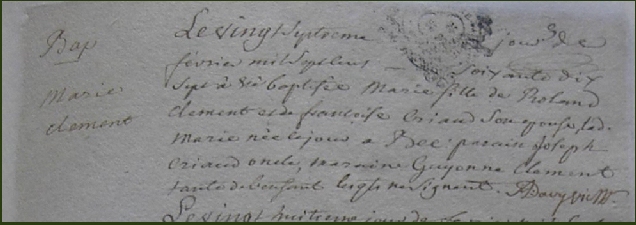 Bap
Marie
clement
Le vingt septieme jour de
février mil sept cens soixante dix
sept a été baptisée Marie fille de Roland
clement et de francoise criaud son epouse, lad.
Marie née le jour a parain Joseph
criaud oncle, maraine Guyonne clement
tante de lenfant lesquels ne signent.
Le vingt huitieme jour de